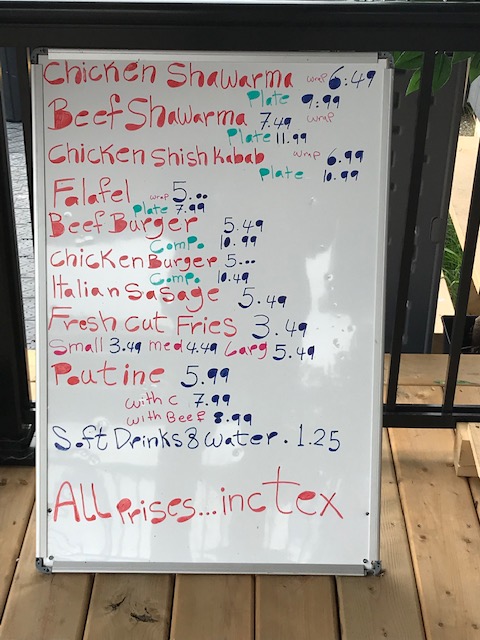 Chicken Shawarma wrap 6:49
Plate 9:99
Beef Shawarma 7.49 wrap
Plate 11.99
Chicken Shish Kabab wrap 6.99
Plate 10.99
Falafel wrap 5...
Plate 7.99
Beef Burger 5.49
Comp. 10.99
Chicken Burger 5...
Comp. 10.49
Italian Sasage 5.49
Fresh cut Fries 3.49
Small 3.49 med 4.49 Larg 5.49
Poutine 5.99
with c 7.99
with Beef 8.99
Soft Drinks & water . 1.25
ALL Prises... inc tex